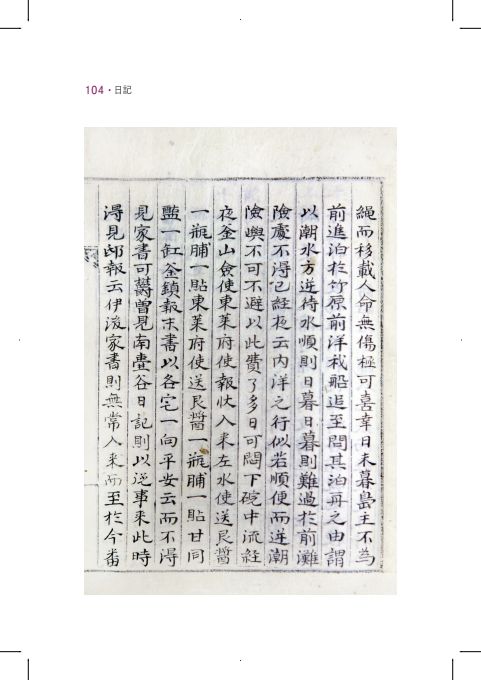 104・日記
繩而移載人命無傷極可喜幸日未暮島主不為
前進泊於竹原前洋我船追至問其泊舟之由謂
以潮水方逆待水順則日暮日暮則難過於前灘
險處不得已經夜云內洋之行似若順便而逆潮
險嶼不可不避以此費了多日可悶下碇中流經
夜釜山僉使東萊府使報狀入來左水使送艮醬
一瓶脯一貼東萊府使送艮醬一瓶脯一貼甘同
醢一缸金鎖報末書以各宅一向平安云而不得
見家書可鬱曾見南壺谷日記則以逆事來此時
得見邸報云伊後家書則無常人來而至於今番